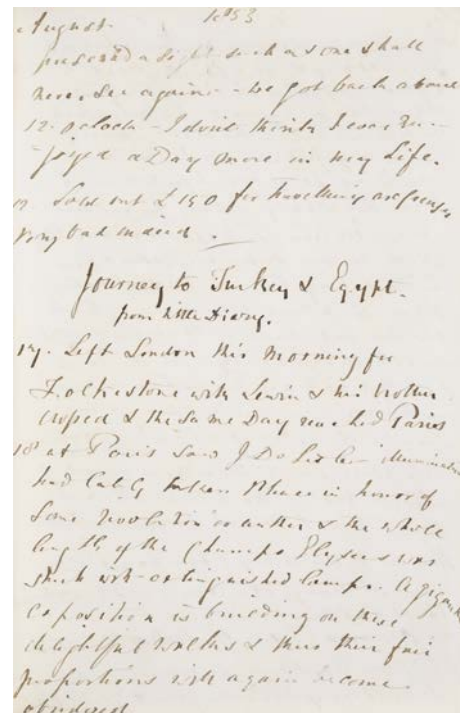 August. 1853
presented a sight such as one shall
never see again - we got back about
12 o'clock - I don't think I ever en-
joyed a Day more in my Life.
Sold out £150 for travelling expenses
very bad indeed.
Journey to Turkey & Egypt.
from little Diary.
17. Left London this Morning for
Folkestone with Lewin & his brother
crossed & the same Day reached Paris
18 at Paris saw J illuminations
had lately taken place in honor of
some revolution or other & the whole
length of the Champs Elysees was
stuck with extinguished lamps. A gigantic
exposition is building on these
delightful walks & thus their fair
proportions will again become